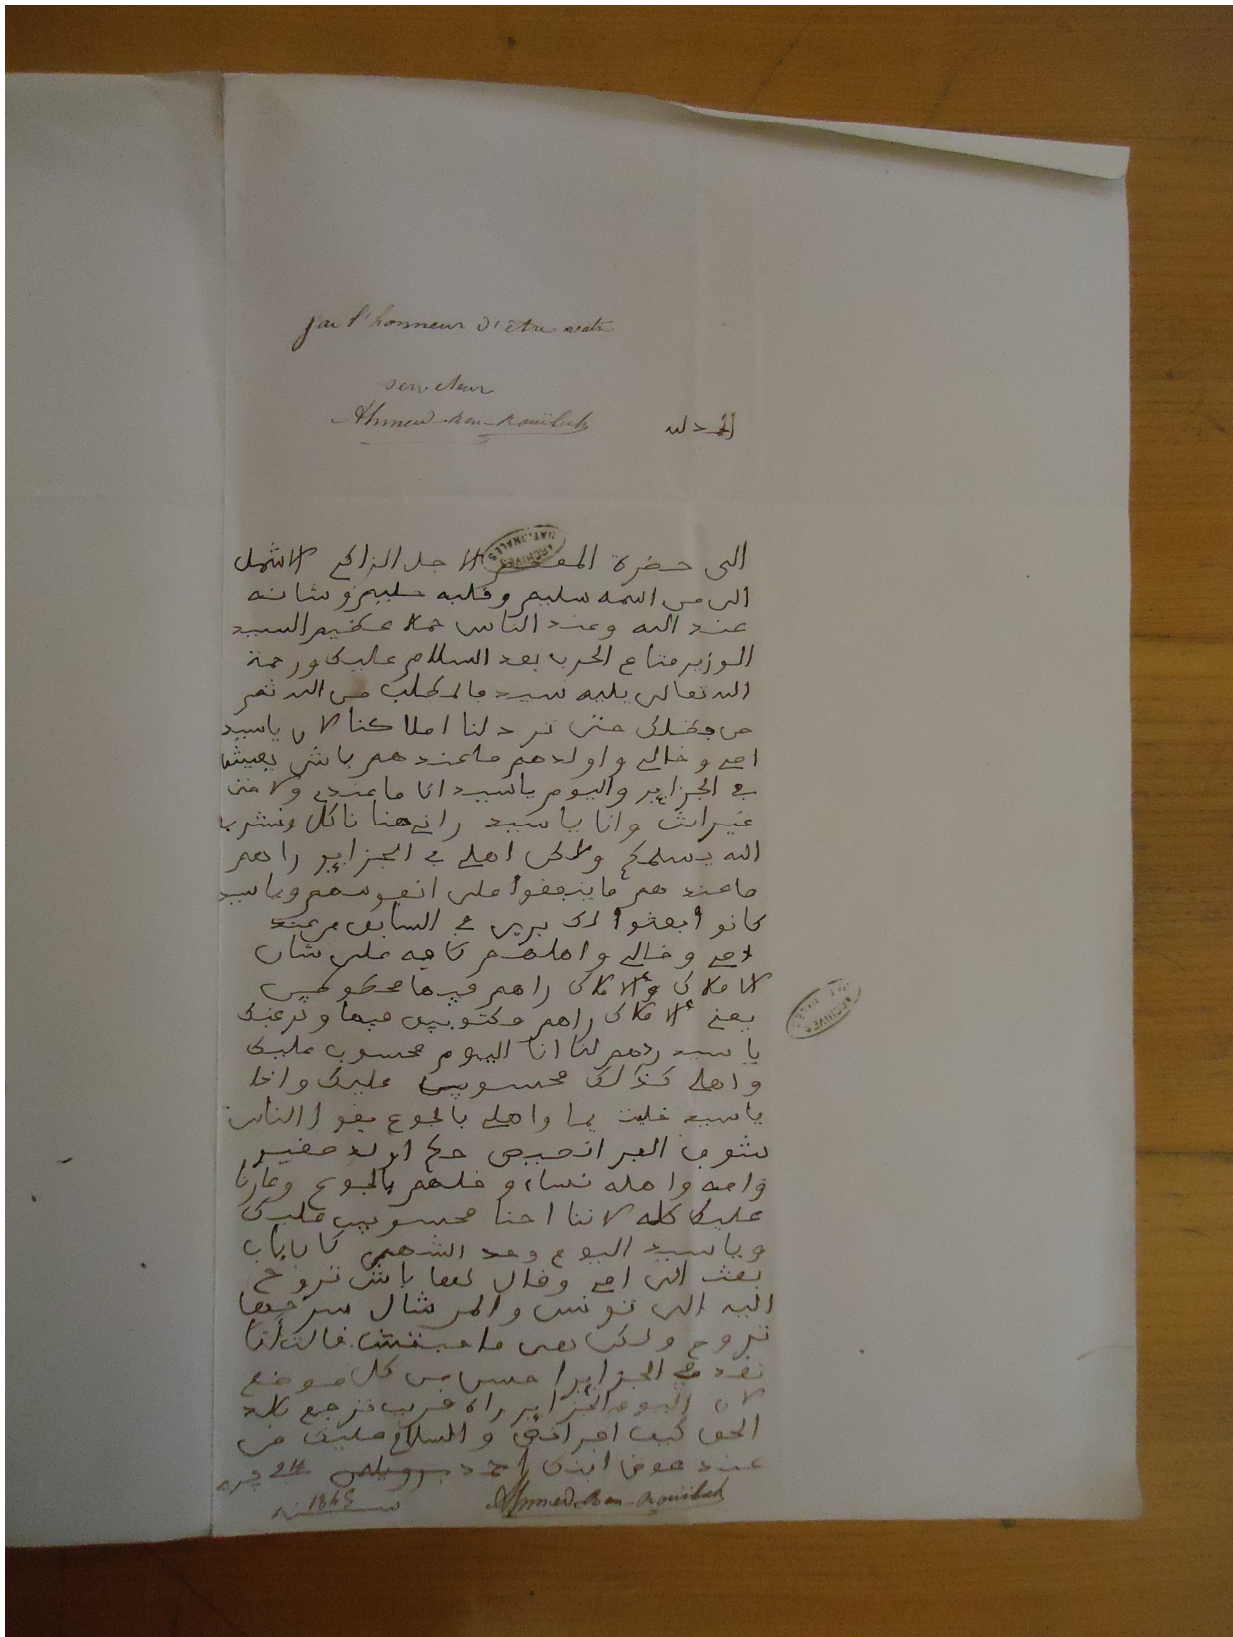 j'ai l'honneur d'être votre
serviteur
Ahmed-Ben-Rouïlah
الحمد لله
الى حضرة المعظم الاجل الزاكي الاشمل
الى من اسمه سليم وقلبه حليم وشانه
عند الله وعند الناس عظيم السيد
الوزير متاع الحرب بعد السلام عليك ورحمة
الله تعالى يليه سيد فالمطلب من الله ثم
من فضلك حتى ترد لنا املاكنا لان ياسيد
امي وخالي واولادهم ما عندهم باش يعيشوا
في الجزاير واليوم ياسيد انا ما عندي ولا حتى
خيرات وانا ياسيد راني هنا ناكل ونشرب
الله يسلمكم ولكن اهلي في الجزاير راهم
ما عندهم ما ينفقوا على انفوسهم وياسيد
كانوا بعثوا لك برية في السابق من عند
امي وخالي واهلهم كافة على شان
الاملاك والاملاك راهم فيها محطوطين
يعني الاملاك راهم مكتوبين فيها ونرغبك
ياسيد ردهم لنا انا اليوم محسوب عليك
واهلي كذلك محسوبين عليك واذا
ياسيد خليت يما واهلي بالجوع يقولوا الناس
شوف الفرانصيص حكم اولد صغير
وامه واهله نساء وخلهم بالجوع وعارنا
عليك كله لاننا احنا محسوبين عليك
وياسيد اليوم وحد الشهر كان بابا
بعث الى امي وقال لها باش تروح
اليه الى تونس والمرشال سرحها
تروح ولكن هي ما حبتش قالت انا
نقعد في الجزاير احسن من كل موضع
لان اليوم الجزاير راه قريب ترجع بلد
الحق كيف افرانصة والسلام عليك من
عند ابنك احمد بن رويلة 24
سنة 1845
Ahmed-Ben-Rouilah
ARCHIVES NATIONALES
ARCHIVES NATIONALES